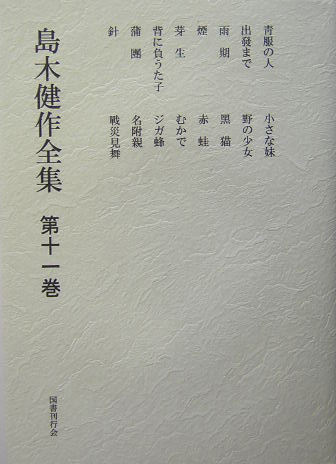 島木健作全集 第十一巻
青服の人
出發まで
雨期
煙
芽生
背に負うた子
蒲團
針
小さな妹
野の少女
黑猫
赤蛙
むかで
ジガ蜂
名附親
戰災見舞
国書刊行会